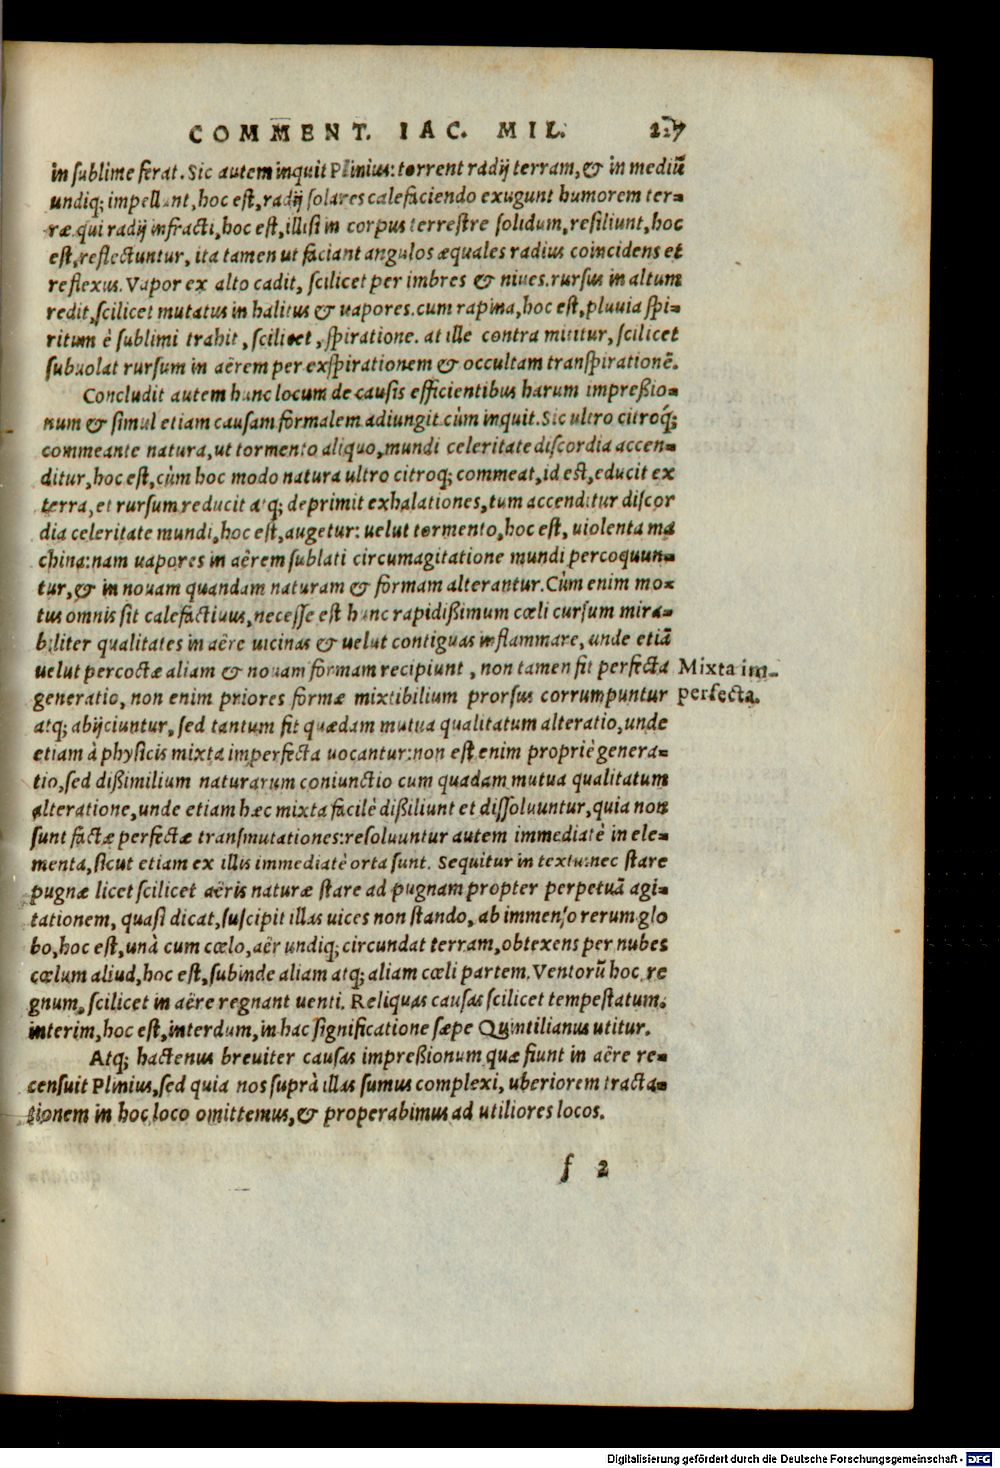 COMMENT. IAC. MIL. 227
in sublime ferat. Sic autem inquit Plinius: torrent radij terram, & in mediũ
undiq; impellunt, hoc est, radij solares calefaciendo exugunt humorem ter-
ræ. qui radij infracti, hoc est, illisi in corpus terrestre solidum, resiliunt, hoc
est, reflectuntur, ita tamen ut faciant angulos æquales radius coincidens et
reflexus. Vapor ex alto cadit, scilicet per imbres & niues. rursus in altum
redit, scilicet mutatus in halitus & uapores. cum rapina, hoc est, pluuia spi-
ritum è sublimi trahit, scilicet, spiratione. at ille contra mittitur, scilicet
subuolat rursum in aërem per exspirationem & occultam transpirationẽ.
Concludit autem hunc locum de causis efficientibus harum impreßio-
num & simul etiam causam formalem adiungit cùm inquit. Sic ultro citroq́;
commeante natura, ut tormento aliquo, mundi celeritate discordia accen-
ditur, hoc est, cùm hoc modo natura ultro citroq; commeat, id est, educit ex
terra, et rursum reducit atq; deprimit exhalationes, tum accenditur discor
dia celeritate mundi, hoc est, augetur: uelut tormento, hoc est, uiolenta ma
china: nam uapores in aërem sublati circumagitatione mundi percoquun-
tur, & in nouam quandam naturam & formam alterantur. Cùm enim mo-
tus omnis sit calefactiuus, necesse est hunc rapidißimum cœli cursum mira-
biliter qualitates in aëre uicinas & uelut contiguas inflammare, unde etiã
uelut percoctæ aliam & nouam formam recipiunt, non tamen fit perfecta
generatio, non enim priores formæ mixtibilium prorsus corrumpuntur
atq; abijciuntur, sed tantum fit quædam mutua qualitatum alteratio, unde
etiam à physicis mixta imperfecta uocantur: non est enim propriè genera-
tio, sed dißimilium naturarum coniunctio cum quadam mutua qualitatum
alteratione, unde etiam hæc mixta facilè dißiliunt et dissoluuntur, quia non
sunt factæ perfectæ transmutationes: resoluuntur autem immediatè in ele-
menta, sicut etiam ex illis immediatè orta sunt. Sequitur in textu: nec stare
pugnæ licet scilicet aëris naturæ stare ad pugnam propter perpetuã agi-
tationem, quasi dicat, suscipit illas uices non stando, ab immenso rerum glo
bo, hoc est, unà cum cœlo, aër undiq; circundat terram, obtexens per nubes
cœlum aliud, hoc est, subinde aliam atq; aliam cœli partem. Ventorũ hoc re
gnum, scilicet in aëre regnant uenti. Reliquas causas scilicet tempestatum.
interim, hoc est, interdum, in hac significatione sæpe Quintilianus utitur.
Atq; hactenus breuiter causas impreßionum quæ fiunt in aëre re-
censuit Plinius, sed quia nos suprà illas sumus complexi, uberiorem tracta-
tionem in hoc loco omittemus, & properabimus ad utiliores locos.
f 2
Mixta im-
perfecta.
Digitalisierung gefördert durch die Deutsche Forschungsgemeinschaft - DFG